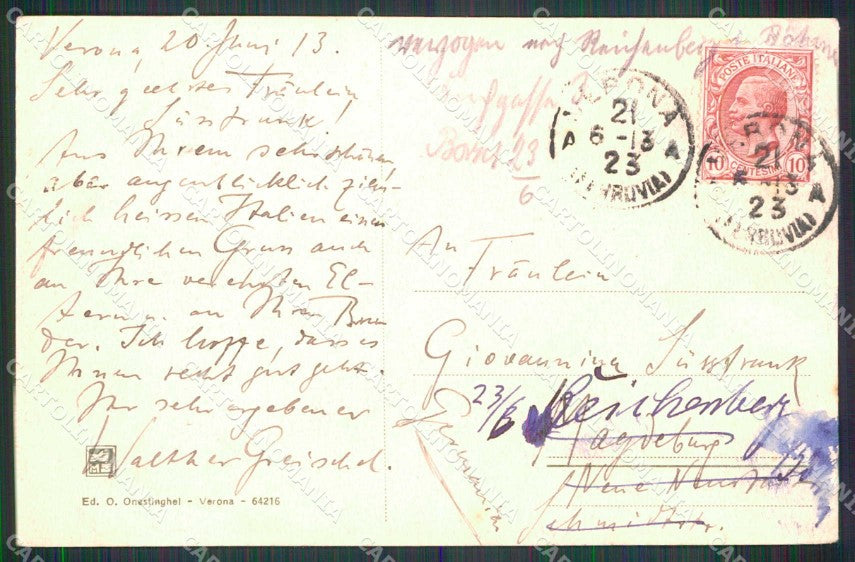 Verona, 20 Juni 13.
Sehr geehrtes Fräulein
Süssfrank!
Aus Ihrem sehr schönen,
aber augenblicklich ziem-
lich heissen Italien einen
freundlichen Gruss auch
an Ihre verehrten El-
tern u. an Ihren Bru-
der. Ich hoffe, dass es
Ihnen recht gut geht.
Ihr sehr ergebener
Walther Greischel.
Ed. O. Onestinghel - Verona - 64216
verzogen nach Reichenberg Böhmen
23
6
POSTE ITALIANE
10 CENTESIMI 10
VERONA
21
6-13
23
A A
(FERROVIA)
VERONA
21
6-13
23
A
(FERROVIA)
An
Fräulein
Giovannina Süssfrank
23/6 Reichenberg
Magdeburg
Neue Neustadt
Schmidtstr.
Germania
CARTOLINOMANIA